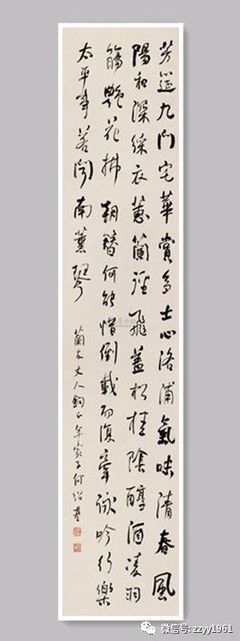 芳筵九门宅華賞多士心洛浦氣味清春風
陽和深綵衣蕙蘭迳飛蓋松桂陰醇酒凌羽
觴艷花拂朝簪何能惜倒載而復牽詠吟行樂
太平事若聞南薰琴
蘭友大人 年家子何紹基
微信号: zzyy1961